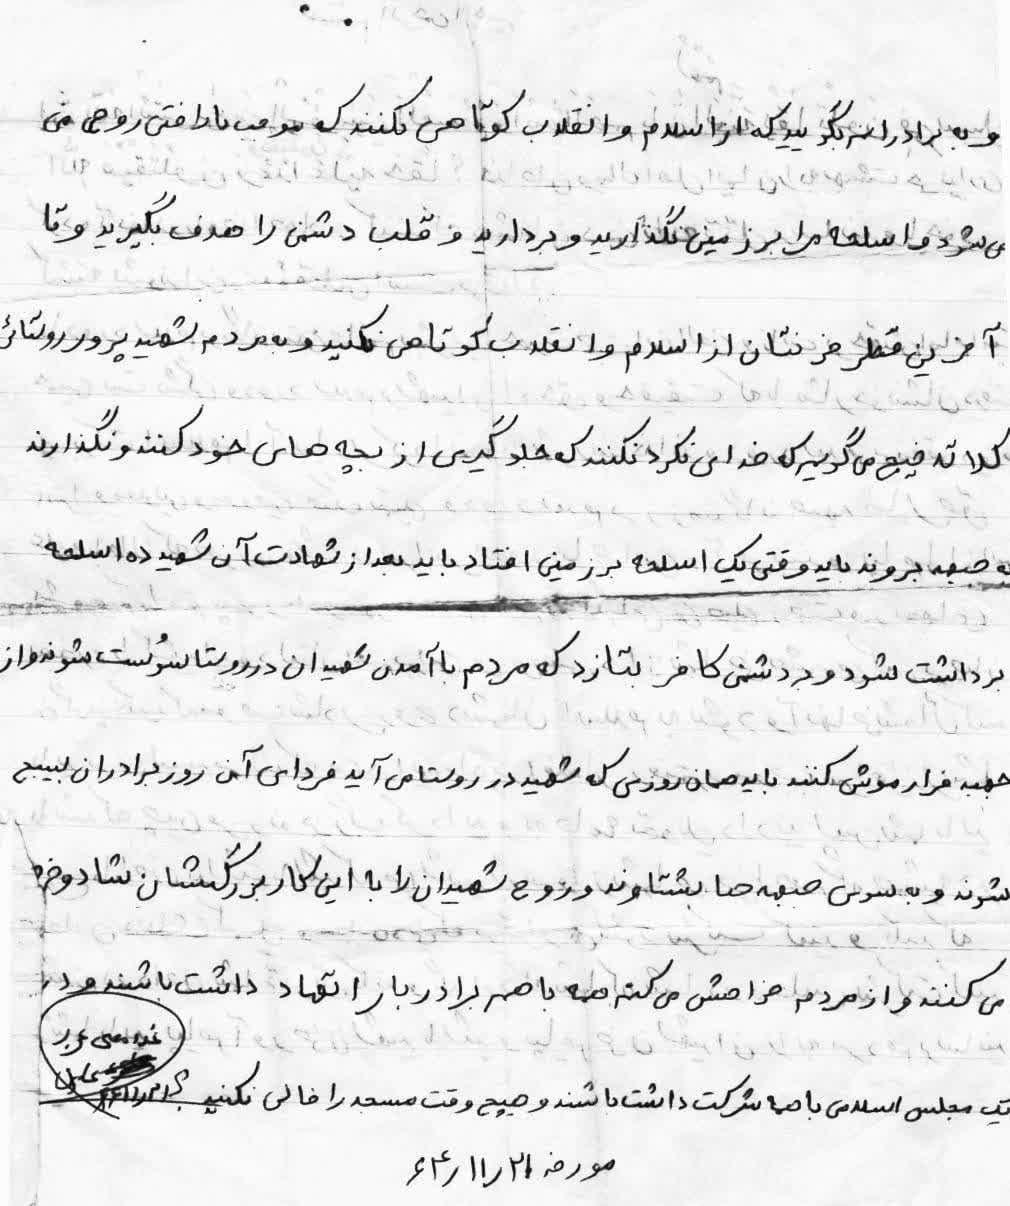 و به برادرانم بگویید که از اسلام و انقلاب کوتاهی نکنند که موجب ناراختی روحی من
می شود و اسلحه مرا بر زمین نگذارید و بردارید و قلب دشمن را هدف بگیرید و تا
آخرین قطر خونتان از اسلام و انقلاب کوتاهی نکنید و به مردم شهید پرور روستائی
کلاته می گویم که خدای نکرد نکنند که جلوگیری از بچه های خود کنند و نگذارند
به جبهه بروند باید وقتی یک اسلحه بر زمین افتاد باید بعد از شهادت آن شهید ده اسلحه
برداشت بشود و بر دشمن کافر بتازد که مردم با آمدن شهیدان در روستا سُست شوند و از
جبهه فرارموش کنند باید همان روزی که شهید در روستا می آید فردای آن روز برادران بسیج
شوند و به سوی جبهه ها بشتاوند و روح شهیدان را با این کار بزرگشان شاد و خرم
می کنند و از مردم خواهش می کنم همه با هم برادربار اتهاد داشت باشند و در
یک مجلس اسلامی با هم شرکت داشت باشند و هیچ وقت مسجد را خالی نکنید
مورخه ۶۴/۱۱/۲۱